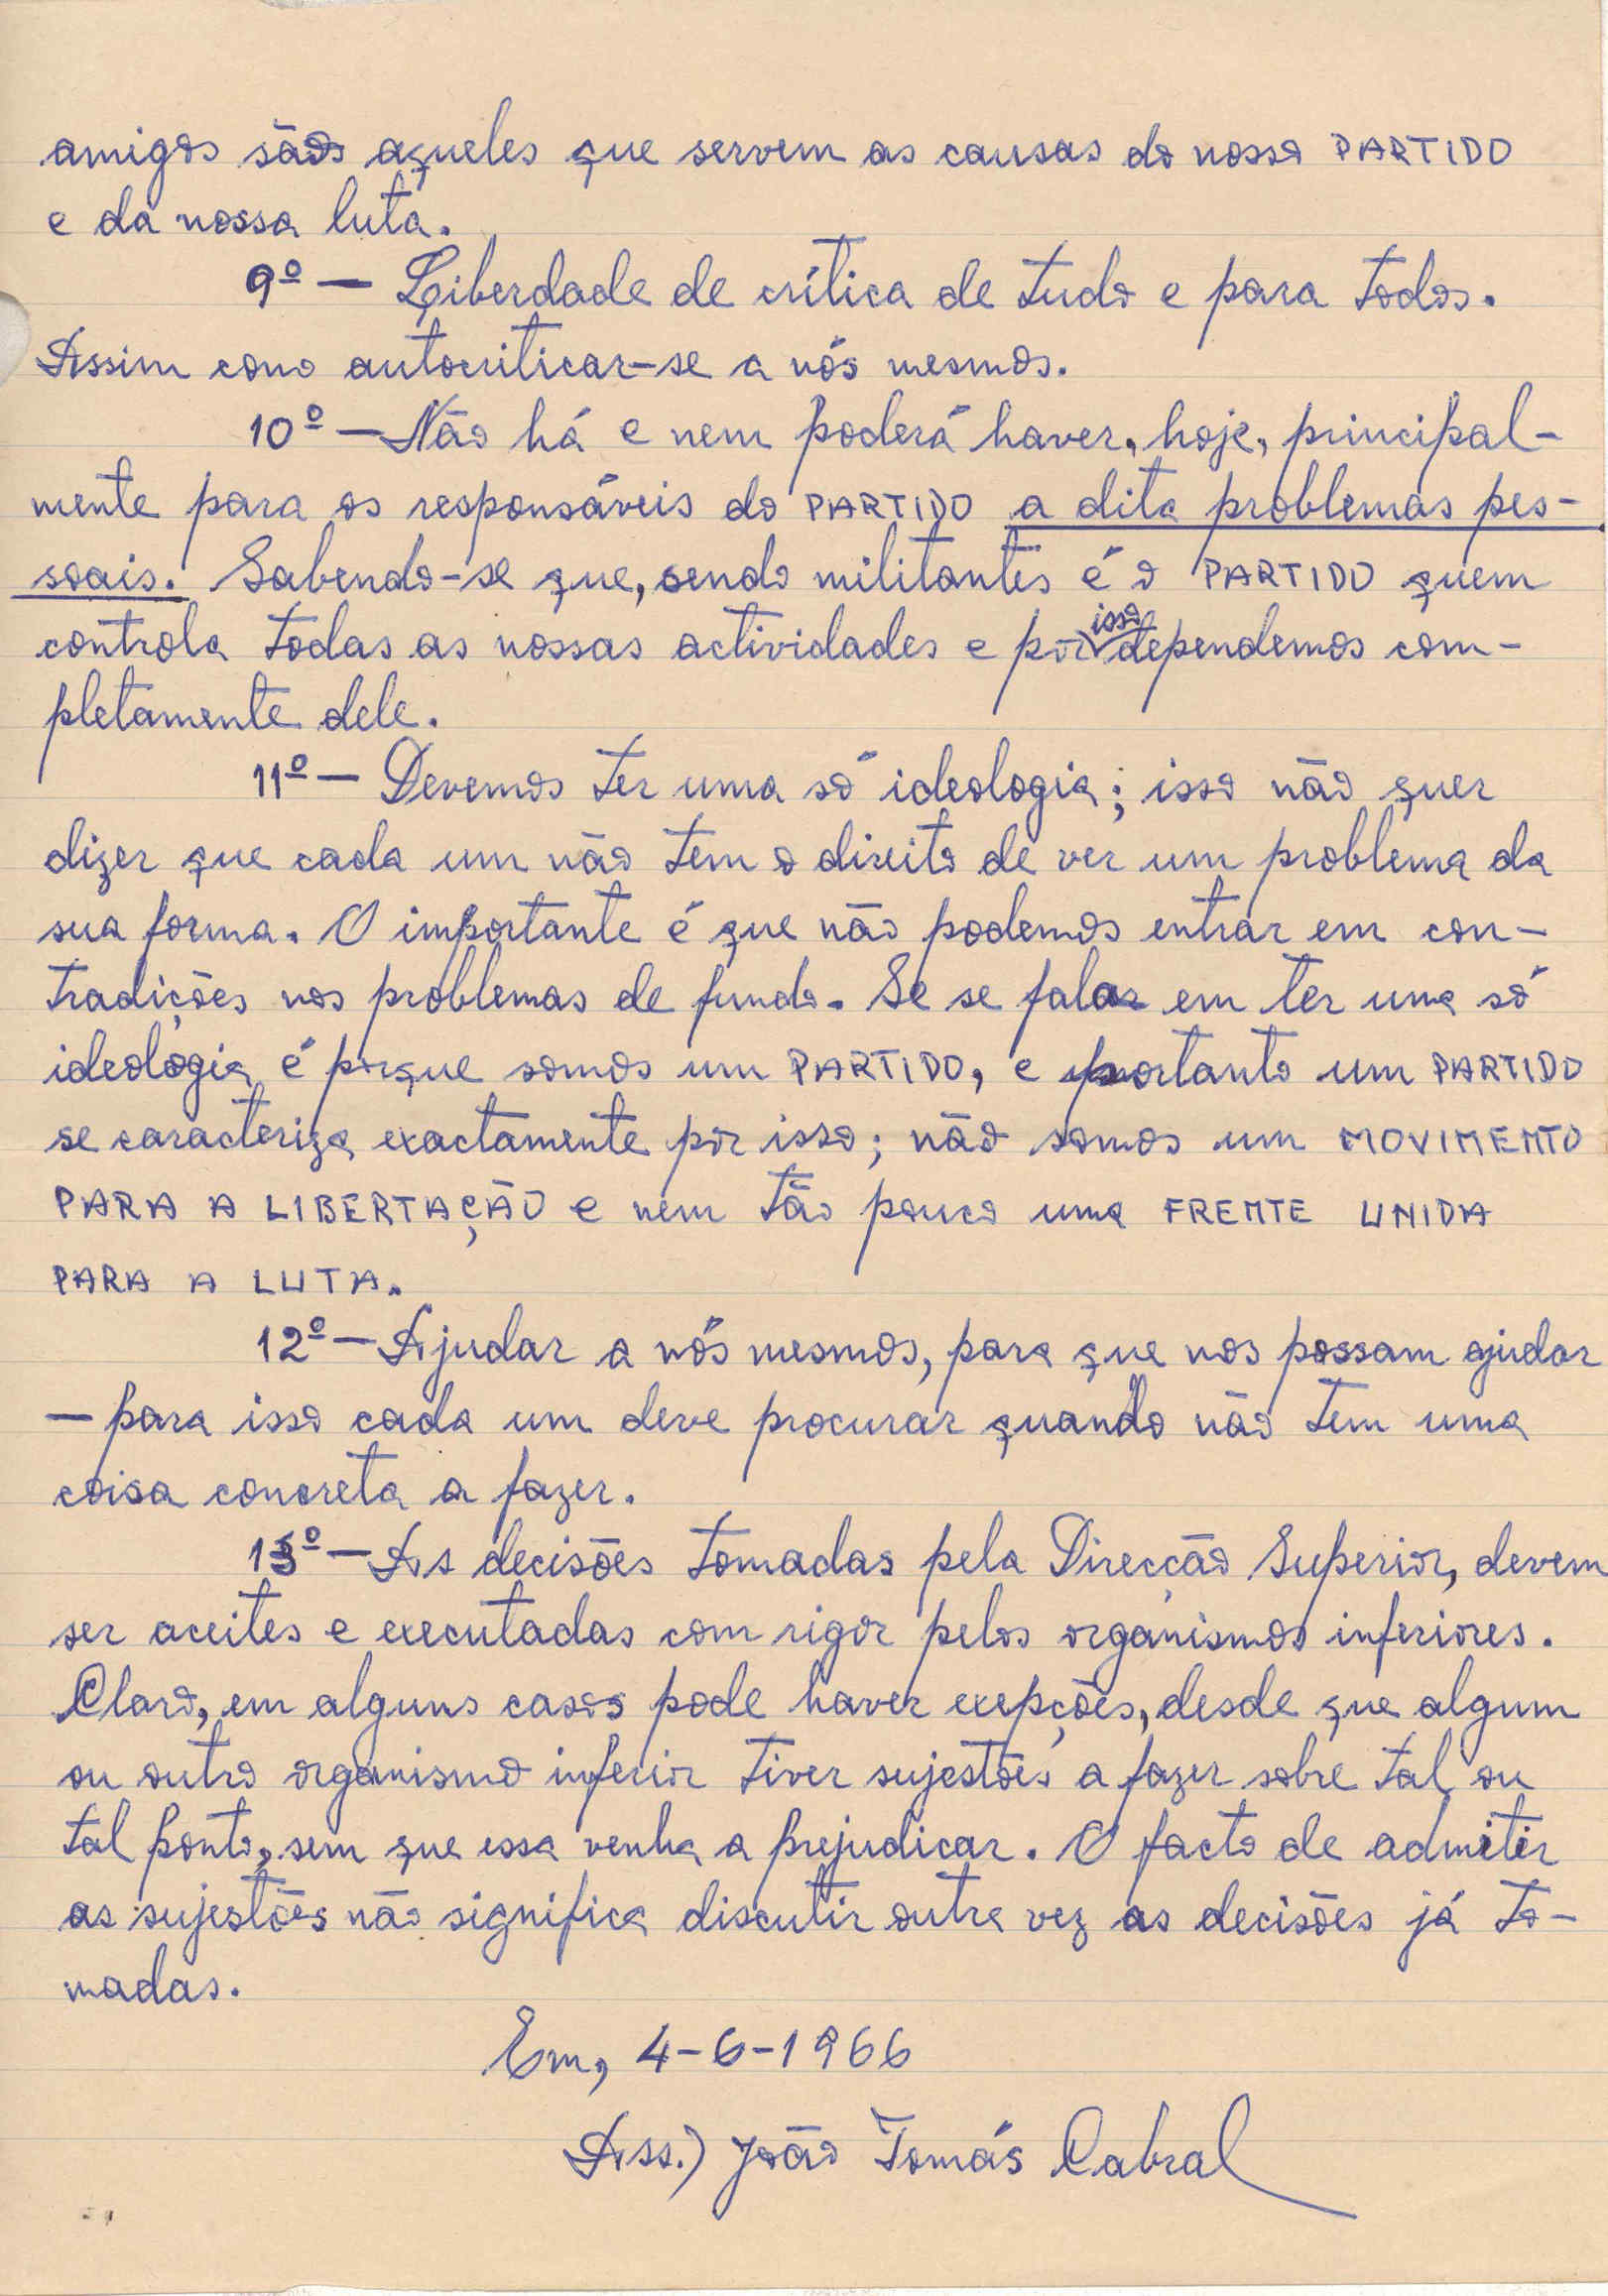 amigos são aqueles que servem as causas do nosso PARTIDO
e da nossa luta.
9º — Liberdade de crítica de tudo e para todos.
Assim como autocriticar-se a nós mesmos.
10º — Não há e nem poderá haver, hoje, principal-
mente para os responsáveis do PARTIDO a dita problemas pes-
soais. Sabendo-se que, sendo militantes é o PARTIDO quem
controla todas as nossas actividades e por isso dependemos com-
pletamente dele.
11º — Devemos ter uma só ideologia; isso não quer
dizer que cada um não tem o direito de ver um problema da
sua forma. O importante é que não podemos entrar em con-
tradições nos problemas de fundo. Se se falar em ter uma só
ideologia é porque somos um PARTIDO, e portanto um PARTIDO
se caracteriza exactamente por isso; não somos um MOVIMENTO
PARA A LIBERTAÇÃO e nem tão pouco uma FRENTE UNIDA
PARA A LUTA.
12º — Ajudar a nós mesmos, para que nos possam ajudar
— para isso cada um deve procurar quando não tem uma
coisa concreta a fazer.
13º — As decisões tomadas pela Direcção Superior, devem
ser aceites e executadas com rigor pelos organismos inferiores.
Claro, em alguns casos pode haver exepções, desde que algum
ou outro organismo inferior tiver sujestões a fazer sobre tal ou
tal ponto, sem que essa venha a prejudicar. O facto de admitir
as sujestões não significa discutir outra vez as decisões já to-
madas.
Em, 4-6-1966
Ass.) João Tomás Cabral